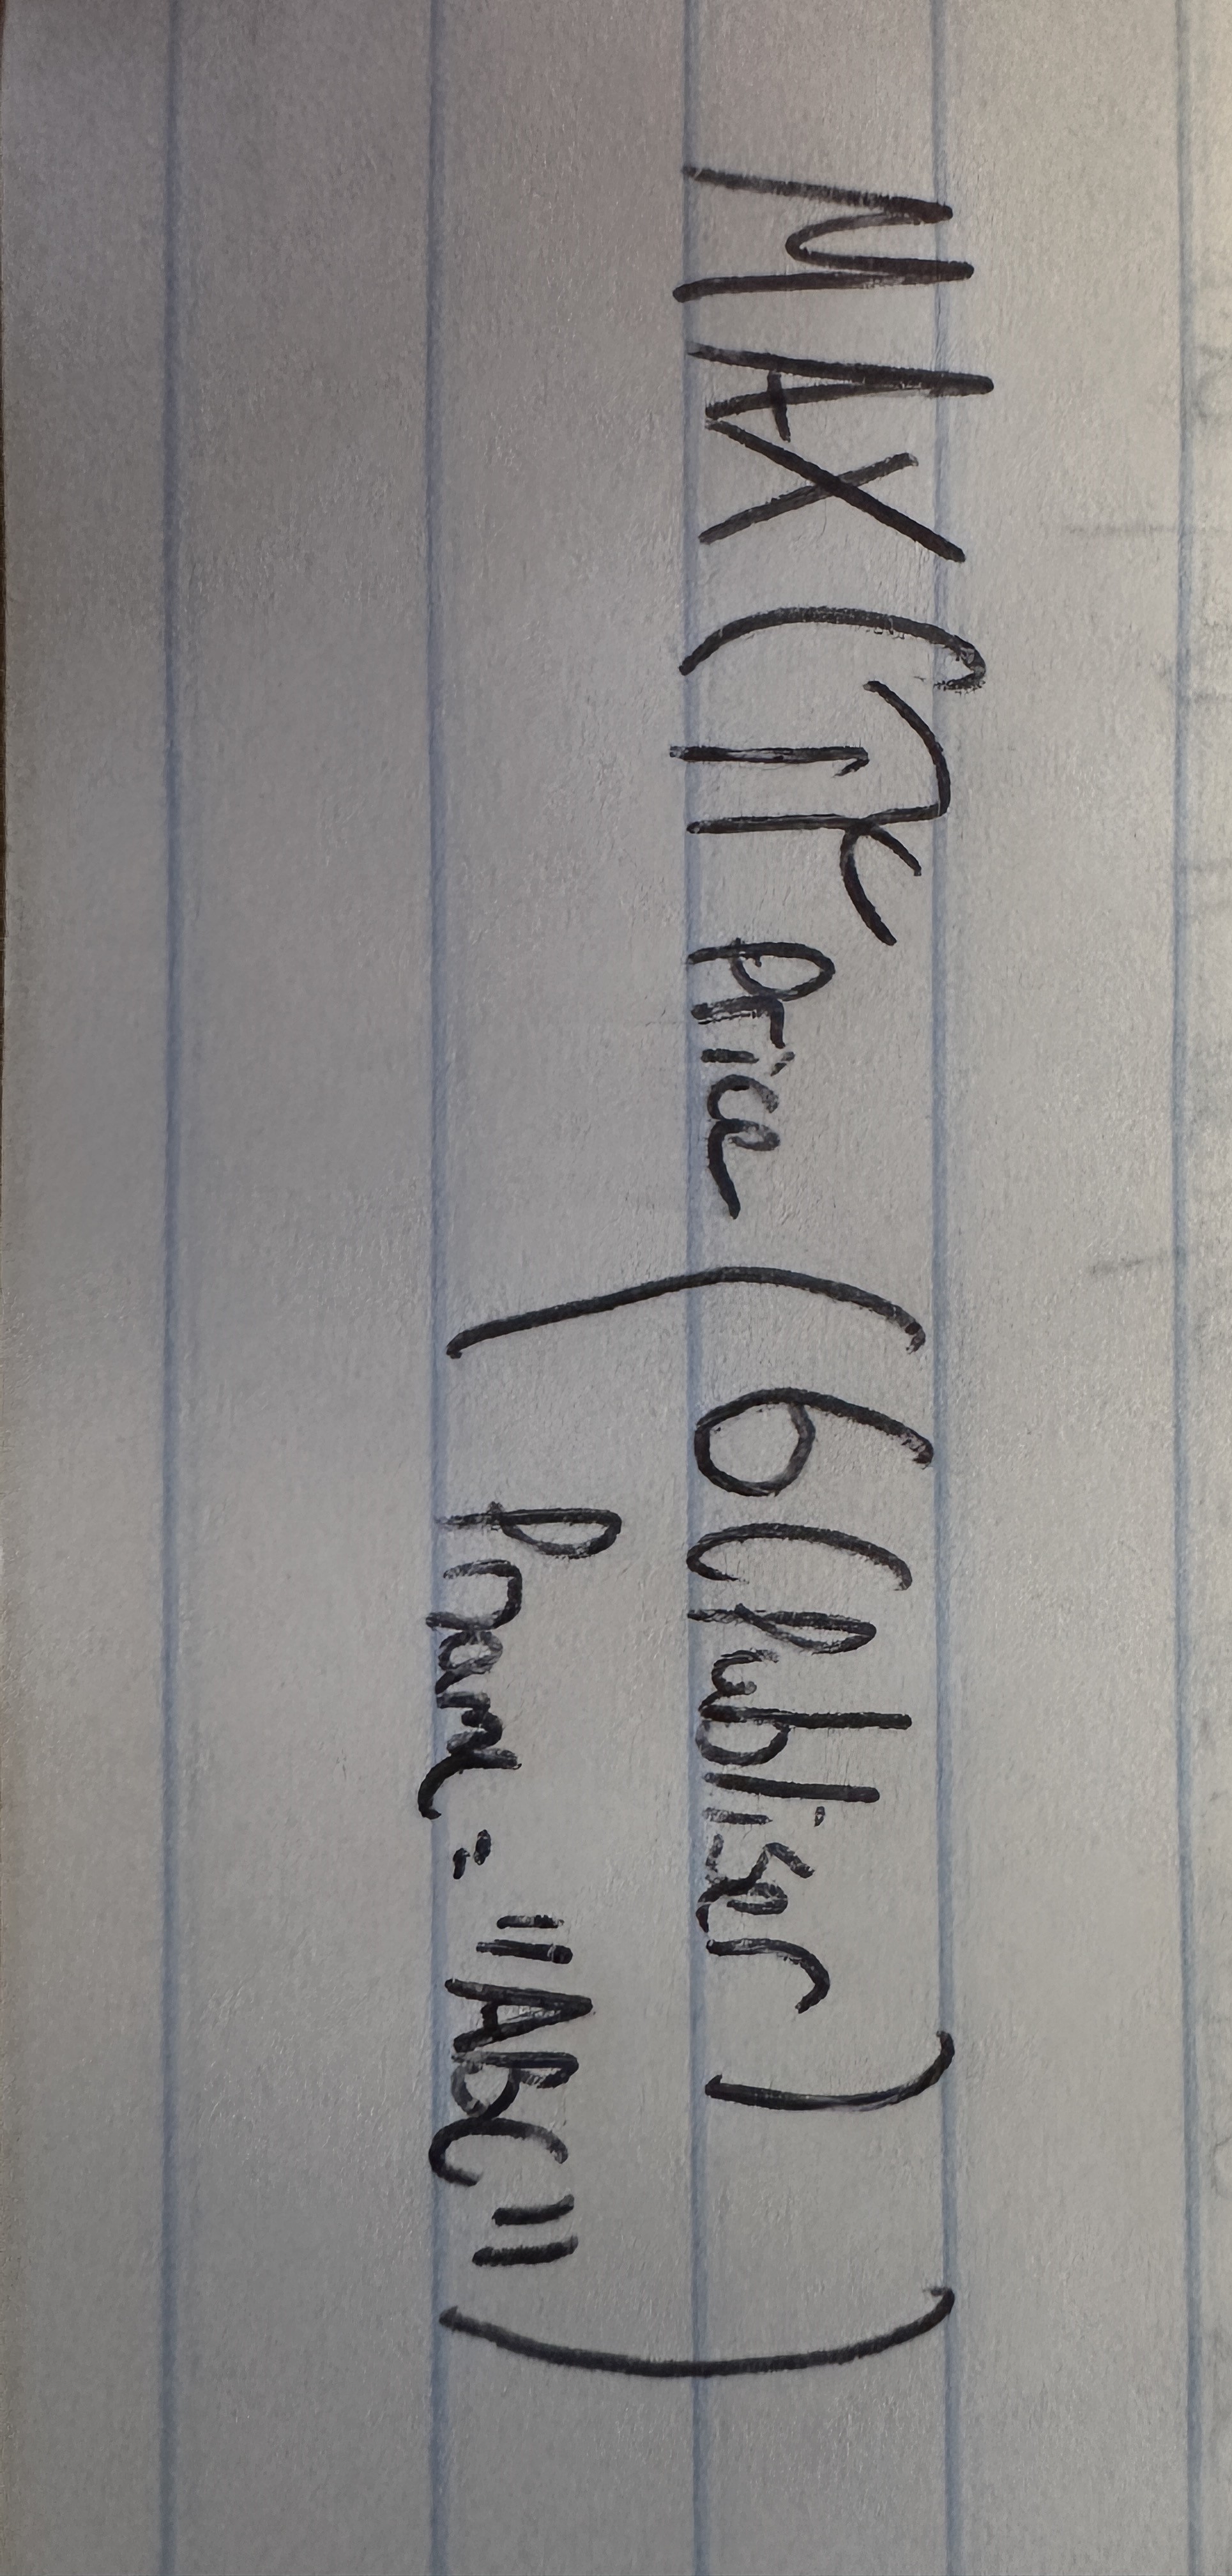 MAX(π price (6(Publiser)
pname = "ABC")